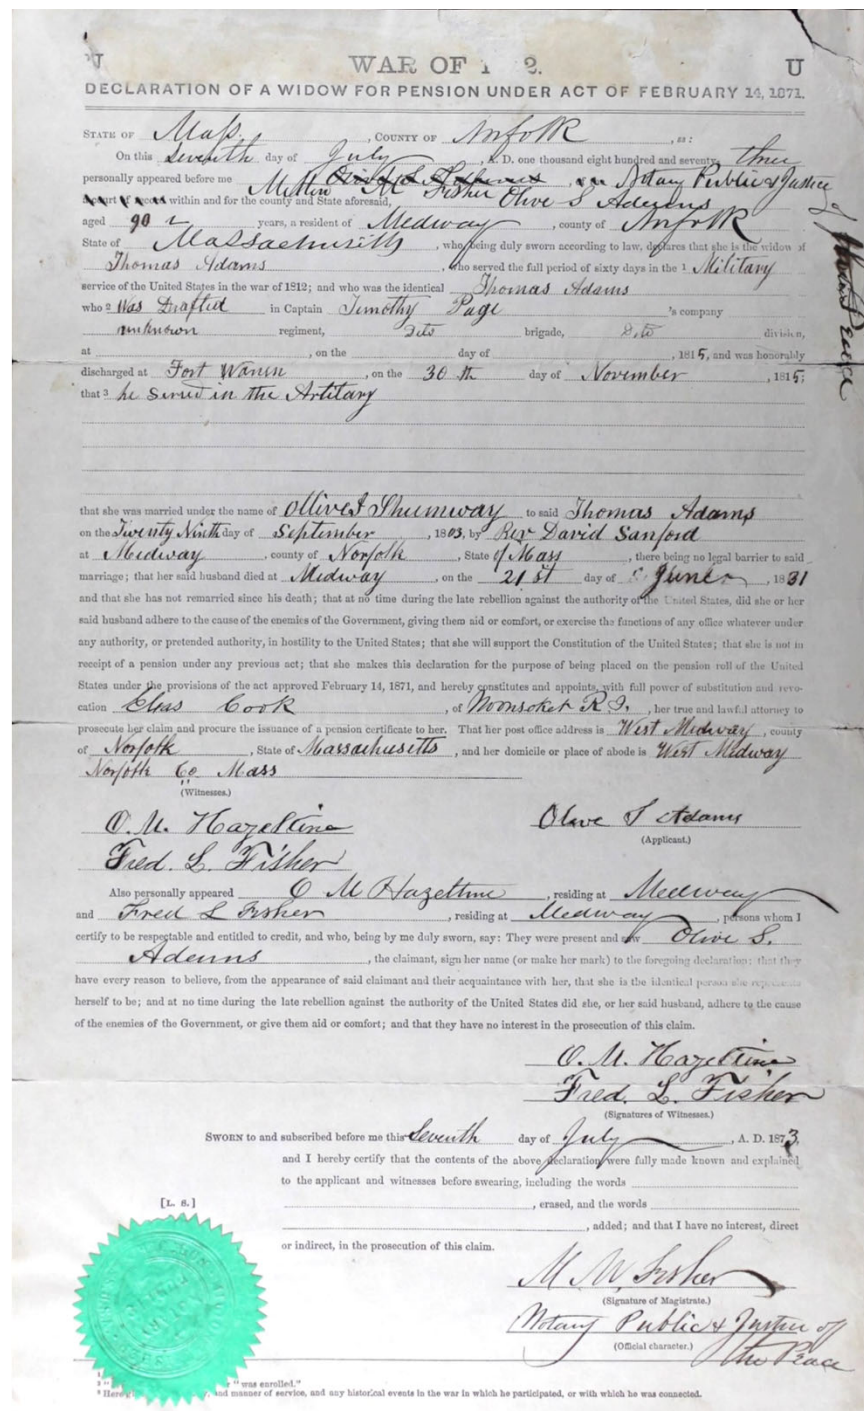 U WAR OF 1 2. U
DECLARATION OF A WIDOW FOR PENSION UNDER ACT OF FEBRUARY 14, 1871.
STATE OF Mass. , COUNTY OF Norfolk , ss:
On this Seventh day of July , A. D. one thousand eight hundred and seventy three
personally appeared before me Milton M Fisher , a Notary Public & Justice of the Peace
within and for the county and State aforesaid, Olive S Adams
aged 90 years, a resident of Medway , county of Norfolk
State of Massachusetts , who being duly sworn according to law, declares that she is the widow of
Thomas Adams , who served the full period of sixty days in the 1 Military
service of the United States in the war of 1812; and who was the identical Thomas Adams
who 2 Was Drafted in Captain Timothy Page 's company
unknown regiment, Dito brigade, Dito division,
at , on the day of , 1815, and was honorably
discharged at Fort Warren , on the 30 th day of November , 1815;
that 3 he served in the Artilary
that she was married under the name of Shumway to said Thomas Adams
on the Twenty Ninth day of September , 1803, by Rev David Sanford
at Medway , county of Norfolk , State of Mass , there being no legal barrier to said
marriage; that her said husband died at Medway , on the 21 st day of June , 1831
and that she has not remarried since his death; that at no time during the late rebellion against the authority of the United States, did she or her
said husband adhere to the cause of the enemies of the Government, giving them aid or comfort, or exercise the functions of any office whatever under
any authority, or pretended authority, in hostility to the United States; that she will support the Constitution of the United States; that she is not in
receipt of a pension under any previous act; that she makes this declaration for the purpose of being placed on the pension roll of the United
States under the provisions of the act approved February 14, 1871, and hereby constitutes and appoints, with full power of substitution and revo-
cation Cook , of Woonsoket R. I. , her true and lawful attorney to
prosecute her claim and procure the issuance of a pension certificate to her. That her post office address is West Medway , county
of Norfolk , State of Massachusetts , and her domicile or place of abode is West Medway
Norfolk Co Mass
(Witnesses.)
O. M. Hazeltine Olive S Adams
(Applicant.)
Fred. L. Fisher
Also personally appeared O M Hazeltine , residing at Medway
and Fred L Fisher , residing at Medway , persons whom I
certify to be respectable and entitled to credit, and who, being by me duly sworn, say: They were present and saw Olive S.
Adams , the claimant, sign her name (or make her mark) to the foregoing declaration; that they
have every reason to believe, from the appearance of said claimant and their acquaintance with her, that she is the identical person she represents
herself to be; and at no time during the late rebellion against the authority of the United States did she, or her said husband, adhere to the cause
of the enemies of the Government, or give them aid or comfort; and that they have no interest in the prosecution of this claim.
O. M. Hazeltine
Fred. L. Fisher
(Signatures of Witnesses.)
SWORN to and subscribed before me this Seventh day of July , A. D. 1873,
and I hereby certify that the contents of the above declaration were fully made known and explained
to the applicant and witnesses before swearing, including the words
[L. S.] , erased, and the words
, added; and that I have no interest, direct
or indirect, in the prosecution of this claim.
M. M. Fisher
(Signature of Magistrate.)
Notary Public & Justice of
(Official character.)
the Peace
" was enrolled."
and manner of service, and any historical events in the war in which he participated, or with which he was connected.